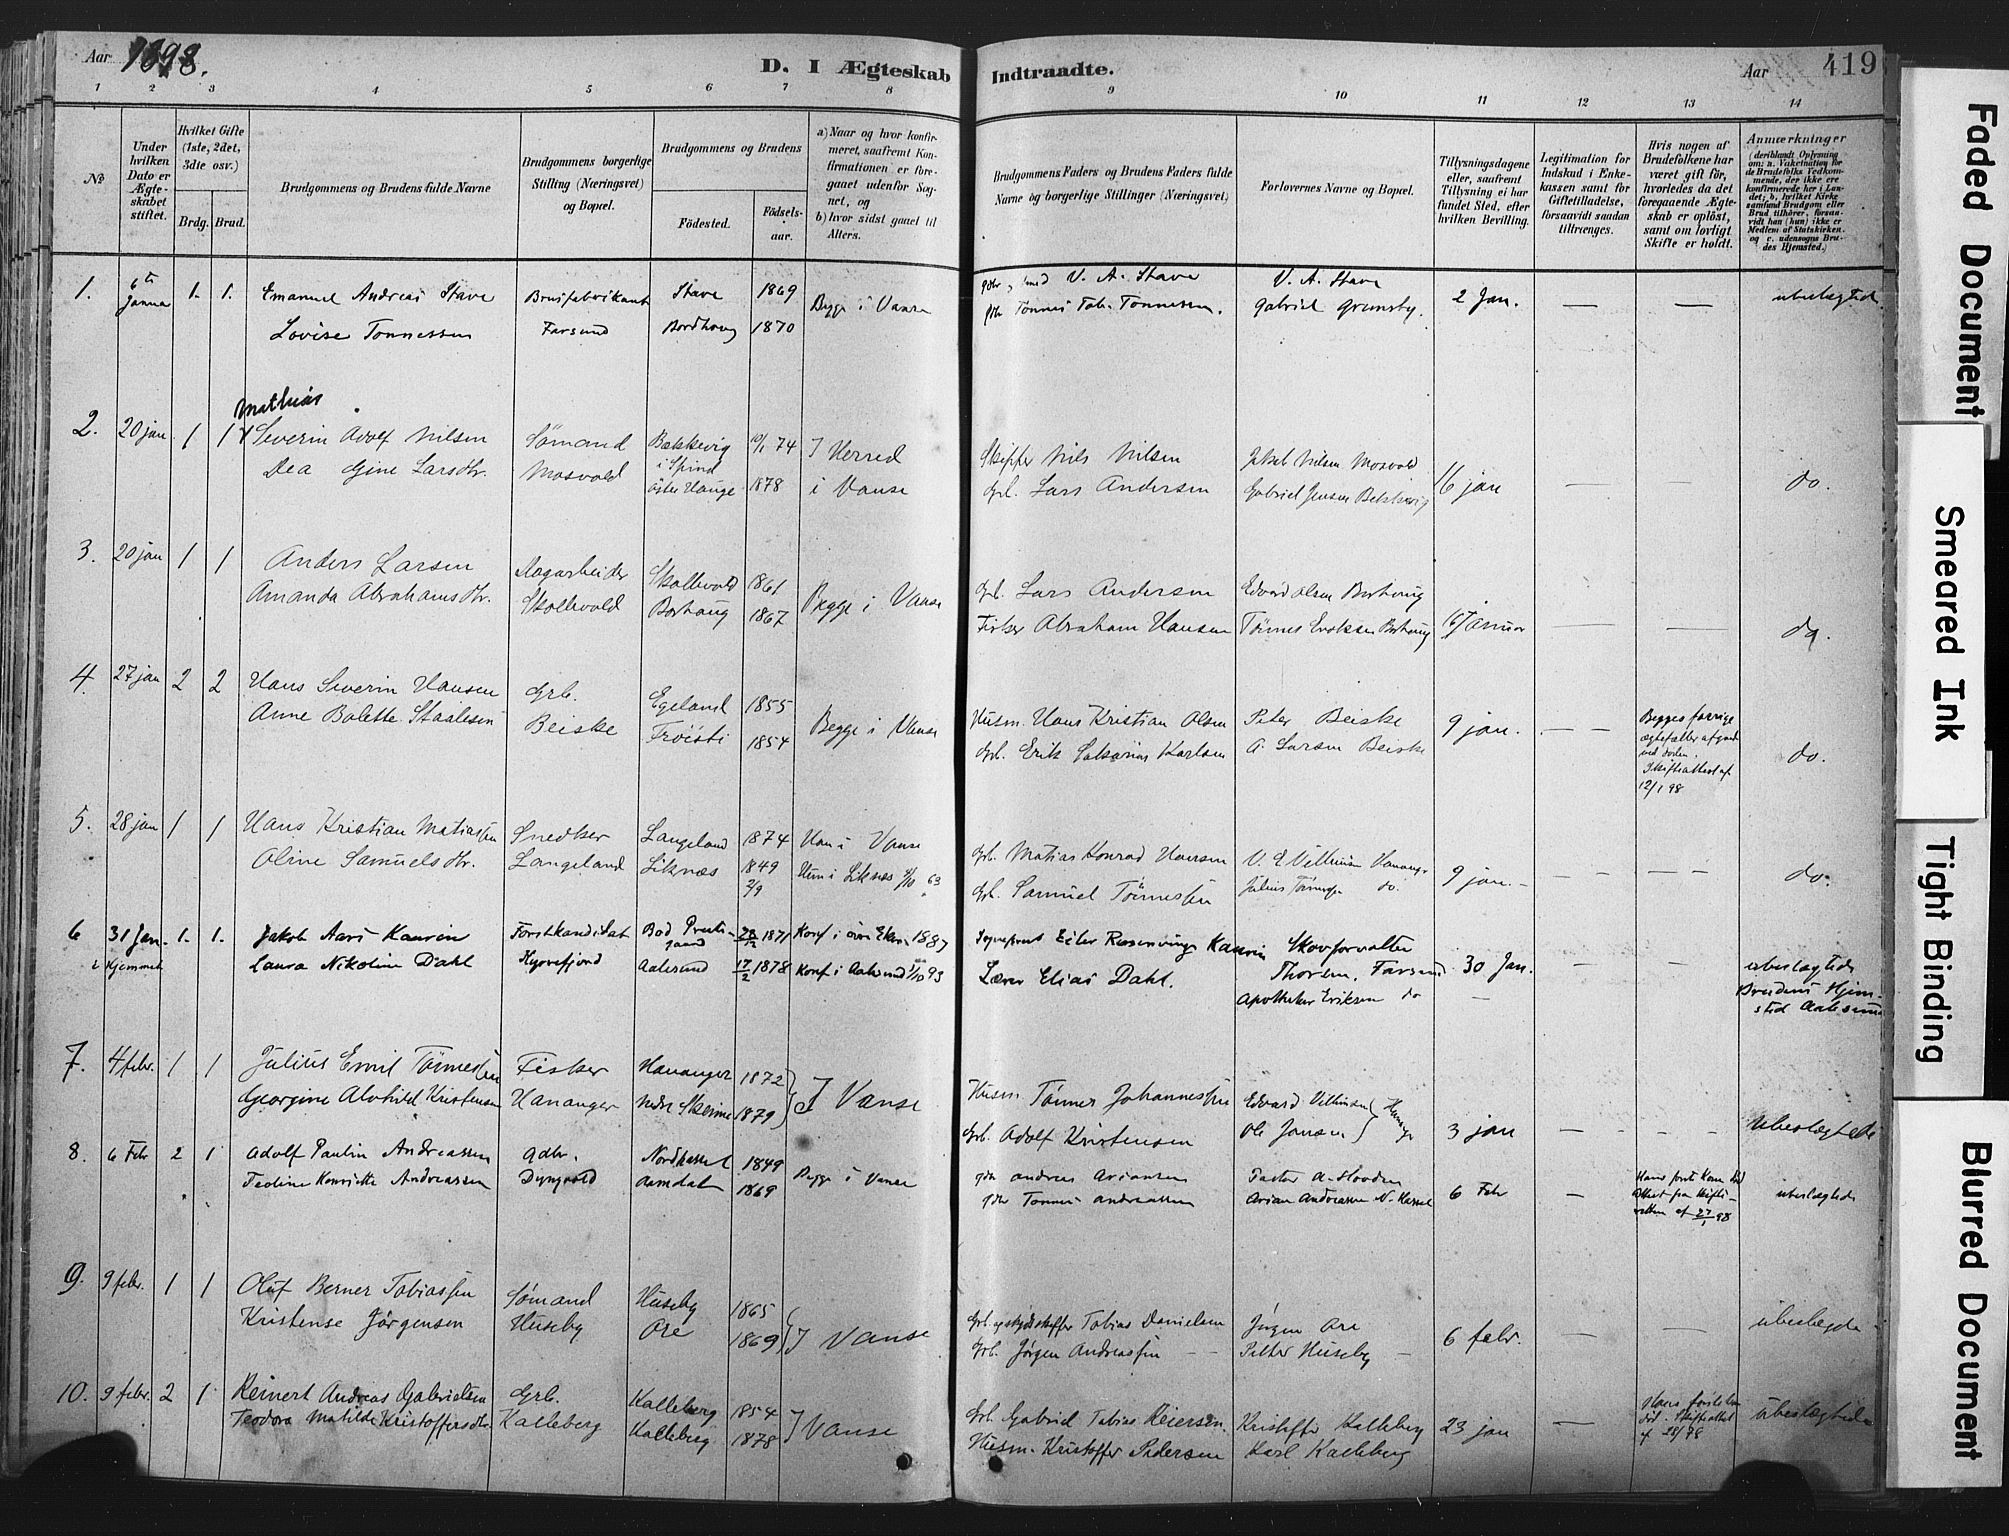 Aar 1898.
D. I Ægteskab Indtraadte.
Aar 419
1 2 3 4 5 6 7 8 9 10 11 12 13 14
No
Under hvilken Dato er Ægteskabet stiftet.
Hvilket Gifte (1ste, 2det, 3die osv.)
Brdg. Brud.
Brudgommens og Brudens fulde Navne
Brudgommens borgerlige Stilling (Næringsvei) og Bopæl.
Brudgommens og Brudens
Fødested. Fødselsaar.
a) Naar og hvor konfirmeret, saafremt Konfirmationen er foregaaet udenfor Sognet, og
b) hvor sidst gaaet til Alters.
Brudgommens Faders og Brudens Faders fulde Navne og borgerlige Stillinger (Næringsvei)
Forlovernes Navne og Bopæl.
Tillysningsdagene eller, saafremt Tillysning ei har fundet Sted, efter hvilken Bevilling.
Legitimation for Indskud i Enkekassen samt for Giftetilladelse, forsaavidt saadan tiltrænges.
Hvis nogen af Brudefolkene har været gift før, hvorledes da det foregaaende Ægteskab er opløst, samt om lovligt Skifte er holdt.
Anmærkninger (deriblandt Oplysning om: a. Vakcination for de Brudefolks Vedkommende, der ikke ere konfirmerede her i Landet; b. hvilket Kirkesamfund Brudgom eller Brud tilhører, forsaavidt han (hun) ikke er Medlem af Statskirken, og c. udensogns Brudes Hjemsted.)
1. 6te Janua 1. 1. Emanuel Andreas Stave Brusfabrikant Stave 1869 Begge i Vanse V. A. Stave V. A. Stave 2 Jan. — — ubeslægtede
Lovise Tønnessen Farsund Bordhaug 1870 Tønnes Tob. Tønnesen. Gabriel Grimsby.
Mathias
2. 20 jan 1 1 Severin Adolf Nilsen Sømand Bækkevig i Spind 10/1 74 I Herred Skipper Nils Nilsen Jakob Nilsen Mosvold 16 jan — — do.
Dea Gine Larsdtr. Mosvold Øster Hauge 1878 i Vanse Grb. Lars Andersen Gabriel Jensen Bekkevig
3. 20 jan 1 1 Anders Larsen Dagarbeider Skollevold 1861 Begge i Vanse Grb. Lars Andersen Edvard Olsen Borhaug 16 Januar — — do.
Amanda Abrahamsdtr. Skollevold Borhaug 1867 Fisker Abraham Hansen Tønnes Eriksen Borhaug
4. 27 jan 2 2 Hans Severin Hansen Grb. Egeland 1855 Begge i Vanse Husm. Hans Kristian Olsen Peter Beiske 9 jan. — — Begges forrige do.
Anne Bolette Staalesen Beiske Frøisti 1854 Grb. Erik Sakarias Karlsen A. Larsen Beiske
ægtefæller afgaaet ved døden. Skifteattest af 12/1 98
5. 28 jan 1 1 Hans Kristian Matiassen Snedker Langeland 1874 Han i Vanse Grb. Matias Konrad Hansen V. E. Villumsen 9 jan. — — do.
Oline Samuelsdtr. Langeland Liknæs 1849 2/9 Hun i Liknæs 4/10 63 Grb. Samuel Tønnessen Julius Tønnessen do.
6 31 Jan. i Hjemmet 1. 1. Jakob Aars Kaurin Forstkandidat Bod Præstegaard 28/12 1871 Konf i 1887 Sogneprest Eiler Rosenvinge Kaurin Skovforvalter Thorsen, Farsund 30 Jan. — — ubeslægtede
Laura Nikoline Dahl Aalesund 17/2 1878 Konf i Aalesund 1/10 93 Lærer Elias Dahl. Apotheker Eriksen do
Brudens Hjemsted Aalesund
7. 4 febr. 1 1 Julius Emil Tønnessen Fisker Hananger 1872 I Vanse Husm. Tønnes Johannessen Edvard Villumsen 3 jan — — ubeslægtede
Georgine Alvhild Kristensen Hananger nedre Skeime 1879 Grb. Adolf Kristensen Ole Jansen
8. 6 Febr 2 1 Adolf Paulin Andreassen Gdbr. Nordhassel 1849 Begge i Vanse Andreas Ariansen Pastor A. Hovden 6 Febr — ubeslægtede
Teoline Henriette Andreassen Dyngvold Aamdal 1869 Tønnes Andreassen Arian Andreassen N. Hassel
Hans første Kone død Attest fra Skifteretten af 27/1 98
9. 9 febr. 1 1 Oluf Berner Tobiassen Sømand Huseby 1865 I Vanse Grb. Tobias Danielsen Jørgen Ore 6 febr. — — ubeslægtede
Kristense Jørgensen Huseby Ore 1869 Grb. Jørgen Andreassen Peter Huseby
10. 9 febr. 2 1 Reinert Andreas Gabrielsen Grb. Kalleberg 1854 I Vanse Grb. Gabriel Tobias Reiersen Kristoffer Kalleberg 23 jan — Hans første død. Skifteattest ubeslægtede
Teodora Matilde Kristoffersdtr. Kalleberg Kalleberg 1878 Husm. Kristoffer Pedersen Karl Kalleberg
Faded Document
Smeared Ink
Tight Binding
Blurred Document